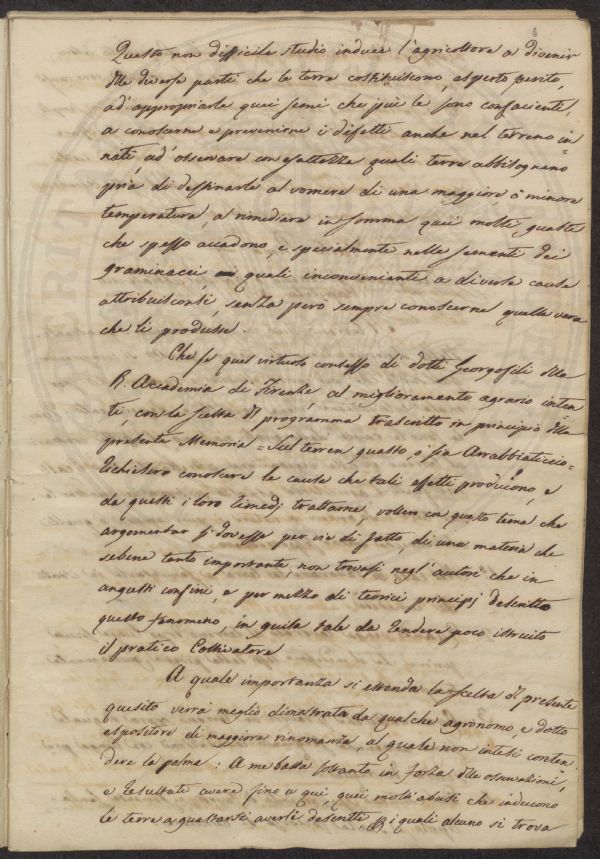 Questo non difficile studio induce l'agricoltore a divenir
delle diverse parti che le terre costituiscono, esperto, perito,
ad' appropriarle quei semi che più le sono confacienti,
a conoscerne e prevenirne i difetti anche nel terreno in=
nati ad' osservare con esattezza quali terre abbisognano
pria di destinarle al vomere di una maggiore, o minore
temperatura, a rimediare in somma quei molti guasti
che spesso accadono, e specialmente nelle semente dei
graminacei, i quali inconvenienti a diverse cause
attribuisconsi, senza però sempre conoscerne quella vera
che li produsse.
Che se quel virtuoso consesso di dotti Georgofili della
R. Accademia di Firenze al miglioramento agrario inten
ti, con la scelta del programma trascritto in principio della
presente Memoria = Sul terren guasto, o sia Arrabbiaticcio =
Richiesero conoscere le cause che tali effetti producono, e
da questi i loro rimedj trattarne, vollero con questo tema che
argomentar si dovesse per via di fatto, di una materia che
sebene tanto importante, non trovasi negl' autori che in
angusti confini, e per mezzo di teorici principj descritto
questo fenomeno, in guisa tale da rendere poco istruito
il pratico Coltivatore
A quale importanza si estenda la scelta del presente
quesito verrà meglio dimostrata da qualche agronomo, e dotto
espositore di maggiore rinomanza, al quale non intesi conten
dere la palma: A me basta soltanto in forza delle osservazioni,
e resultati avere fino a qui, quei molti abusi che inducono
le terre a guastarsi averli descritti, i quali alcuno si trova